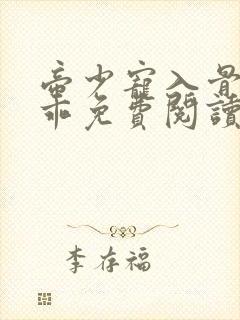 帝少寵入骨
乖免費閱讀
李存福